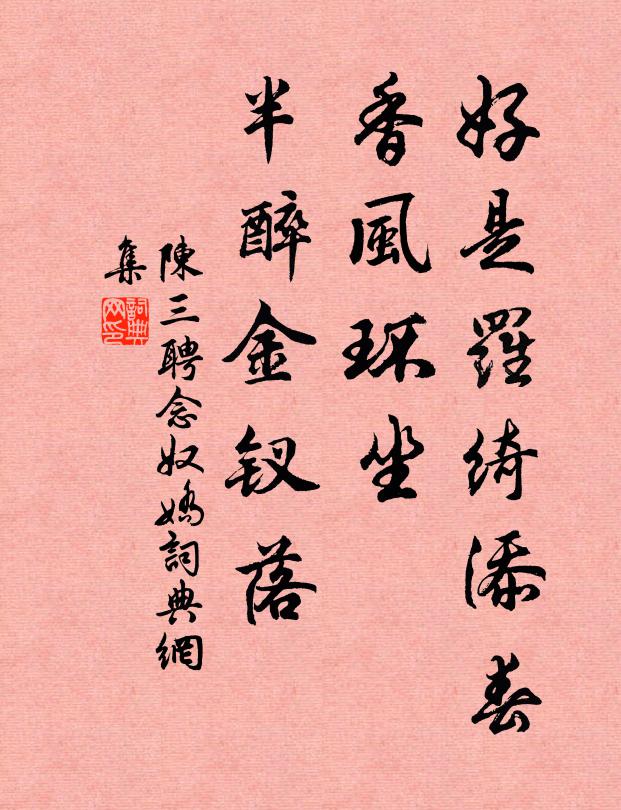 好是羅綺添春
香風环坐
半醉金釵落
陳三聘念奴嬌詞典網
集
詞典網印